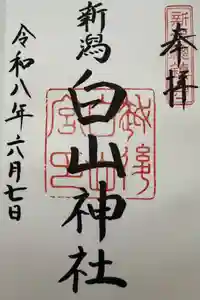 奉拝
新潟
白山神社
令和八年六月七日
越後